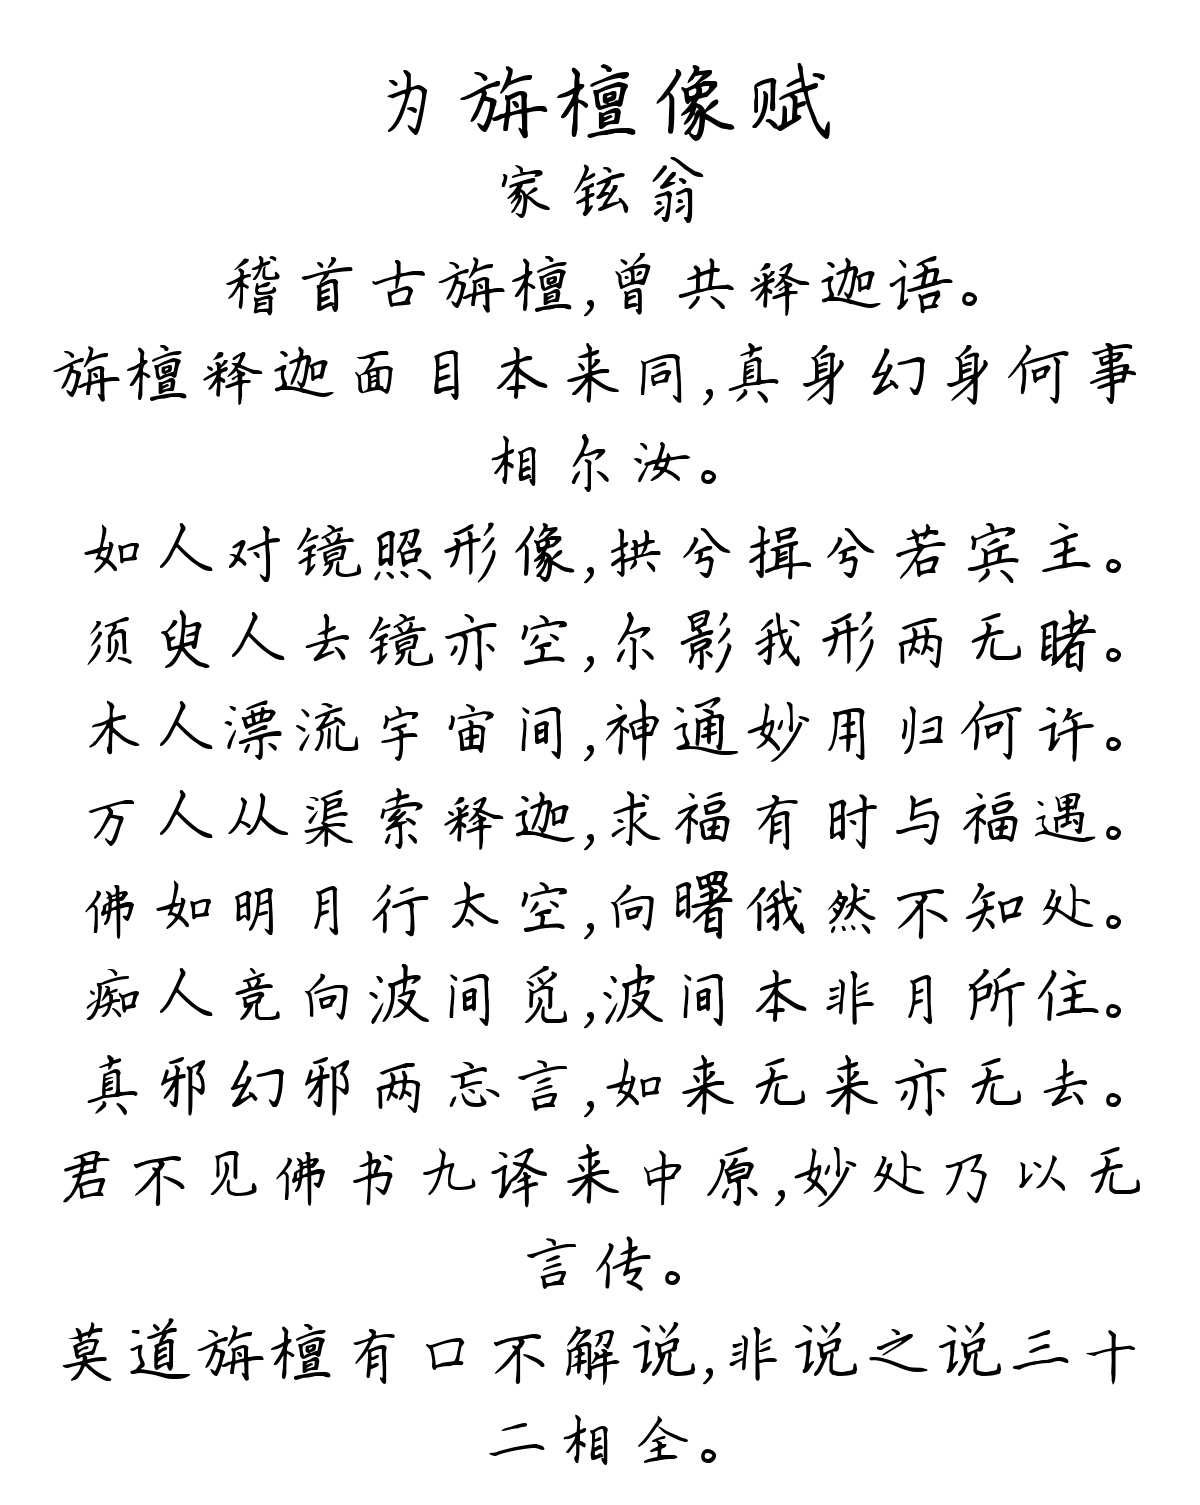 为旃檀像赋
家铉翁
稽首古旃檀,曾共释迦语。
旃檀释迦面目本来同,真身幻身何事
相尔汝。
如人对镜照形像,拱兮揖兮若宾主。
须臾人去镜亦空,尔影我形两无睹。
木人漂流宇宙间,神通妙用归何许。
万人从渠索释迦,求福有时与福遇。
佛如明月行太空,向曙俄然不知处。
痴人竞向波间觅,波间本非月所住。
真邪幻邪两忘言,如来无来亦无去。
君不见佛书九译来中原,妙处乃以无
言传。
莫道旃檀有口不解说,非说之说三十
二相全。